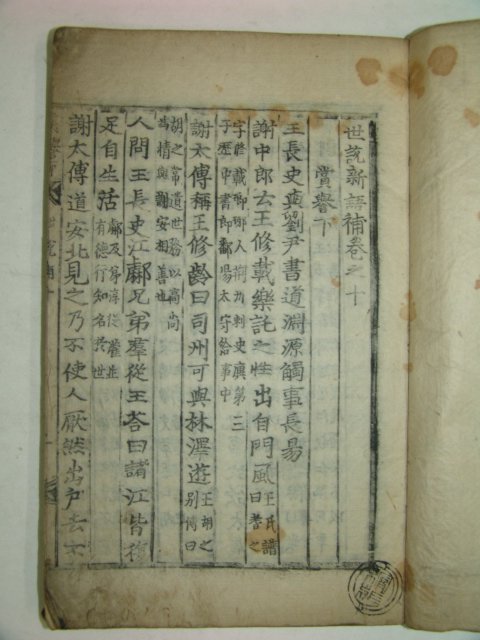 世說新語補卷之十
賞譽下
王長史與劉尹書道淵源觸事長易
謝中郎云王修載樂託之性出自門風王氏譜曰耆之
字修載瑯琊人荊州刺史廙第三
子歷中書郎鄱陽太守給事中
謝太傅稱王修齡曰司州可與林澤遊王胡之別傳曰
胡之常遺世務以高尚
爲情與謝安相善也
人問王長史江虨兄弟羣從王荅曰諸江皆復
足自生活虨及弟淳從灌並有德行知名於世
謝太傅道安北見之乃不使人厭然出戶去不